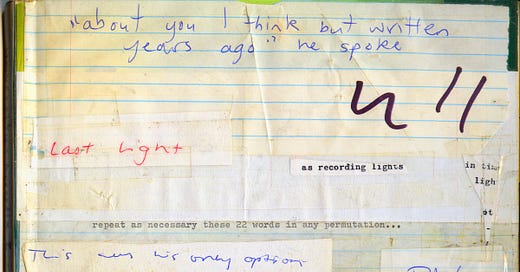 "about you I think but written
years ago" he spoke
Last Light
as recording lights
in
repeat as necessary these 22 words in any permutation...
This was his only option